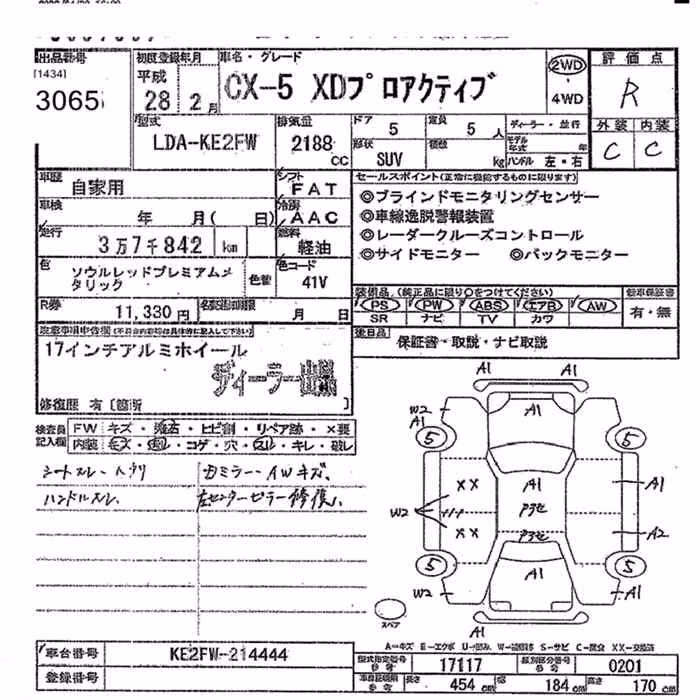 出品番号 初度登録年月 車名・グレード 評価点
[1434] 平成 2WD
3065 28 2月 CX-5 XDプロアクティブ ・ R
4WD
型式 排気量 ドア 5 定員 5人 ディーラー・並行 外装 内装
LDA-KE2FW 2188cc 形状 SUV 積載 kg モデル年式 年 C C
ハンドル 左・右
車歴 自家用 シフト FAT セールスポイント(正常に機能するものに限ります)
車検 年 月( 日) 冷房 AAC ◎ブラインドモニタリングセンサー
◎車線逸脱警報装置
走行 3万7千842 km 燃料 軽油 ◎レーダークルーズコントロール
◎サイドモニター ◎バックモニター
色 ソウルレッドプレミアムメタリック 色替 色コード 41V
装備品(純正品に限り○をつけてください) 新車保証書
R券 11,330円 名変期限 月 日 PS PW ABS エアB AW 有・無
SR ナビ TV カワ
後日品 保証書・取説・ナビ取説
17インチアルミホイール
ディーラー出品
修復歴 有〔箇所 〕
検査員 FW キズ・飛石・ヒビ割・リペア跡・×要
記入欄 内装 キズ・コゲ・穴・スレ・キレ・破レ
シートスレ
ハンドルスレ
左センターピラー修復
A1 A1
W2 A1 A1
5 5
XX A1 A1
W2 XX A2
5 5
W2 A1 A1
A1
スペア
A-キズ E-エクボ S-サビ C-腐食 XX-交換済
車台番号 KE2FW-214444 型式指定番号 17117 類別区分番号 0201
登録番号 長さ 454cm 幅 184cm 高さ 170cm